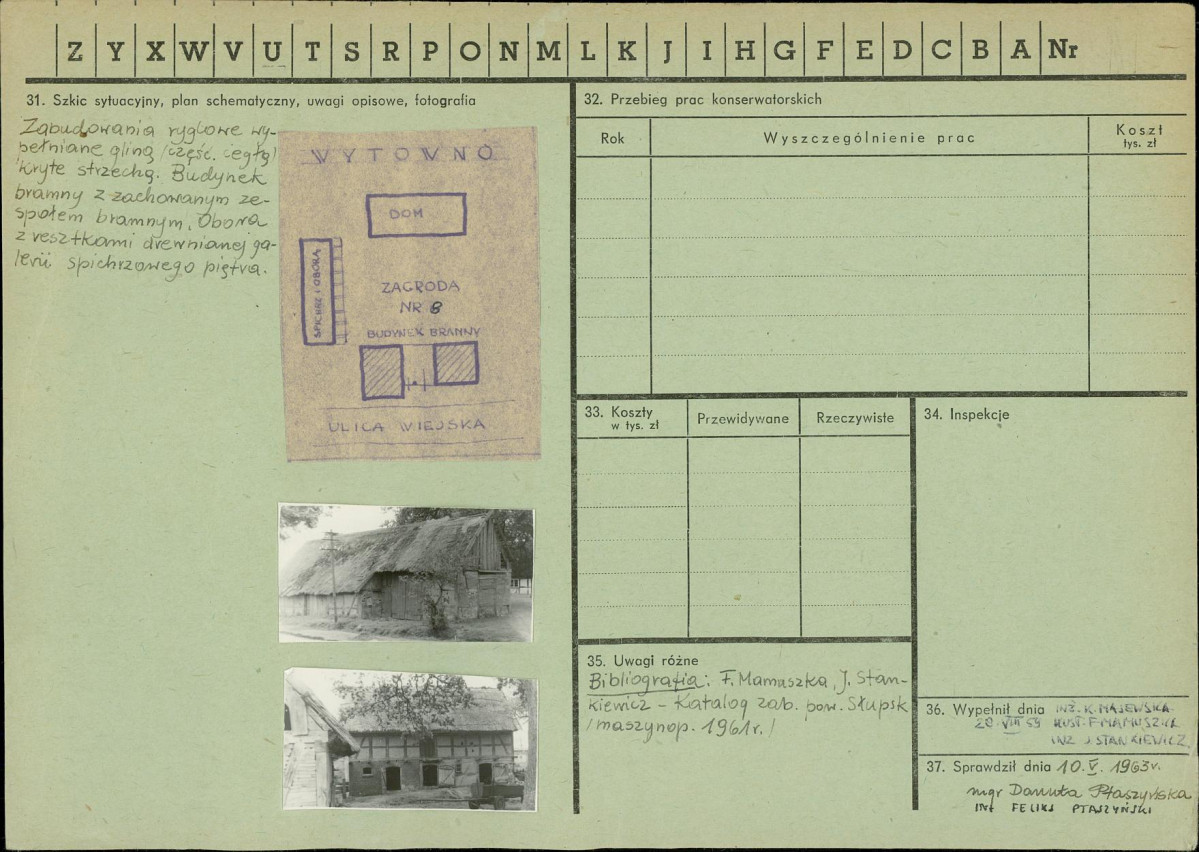 Z Y X W V U T S R P O N M L K J I H G F E D C B A Nr
31. Szkic sytuacyjny, plan schematyczny, uwagi opisowe, fotografia
Zabudowania ryglowe wy-
pełniane gliną /część. cegłą/
kryte strzechą. Budynek
bramny z zachowanym ze-
społem bramnym. Obora
z resztkami drewnianej ga-
lerii spichrzowego piętra.
WYTOWNO
DOM
SPICHRZ I OBORA
ZAGRODA
NR 8
BUDYNEK BRAMNY
ULICA WIEJSKA
32. Przebieg prac konserwatorskich
Rok
Wyszczególnienie prac
Koszt
tys. zł
33. Koszty
w tys. zł
Przewidywane
Rzeczywiste
34. Inspekcje
35. Uwagi różne
Bibliografia: F. Mamuszka, J. Stan-
kiewicz – Katalog zab. pow. Słupsk
/maszynop. 1961r./
36. Wypełnił dnia INŻ. K. MAJEWSKA
28 VIII 59 KUST. F. MAMUSZKA
INŻ J STANKIEWICZ
37. Sprawdził dnia 10.V. 1963r.
mgr Danuta Ptaszyńska
INŻ FELIKS PTASZYŃSKI